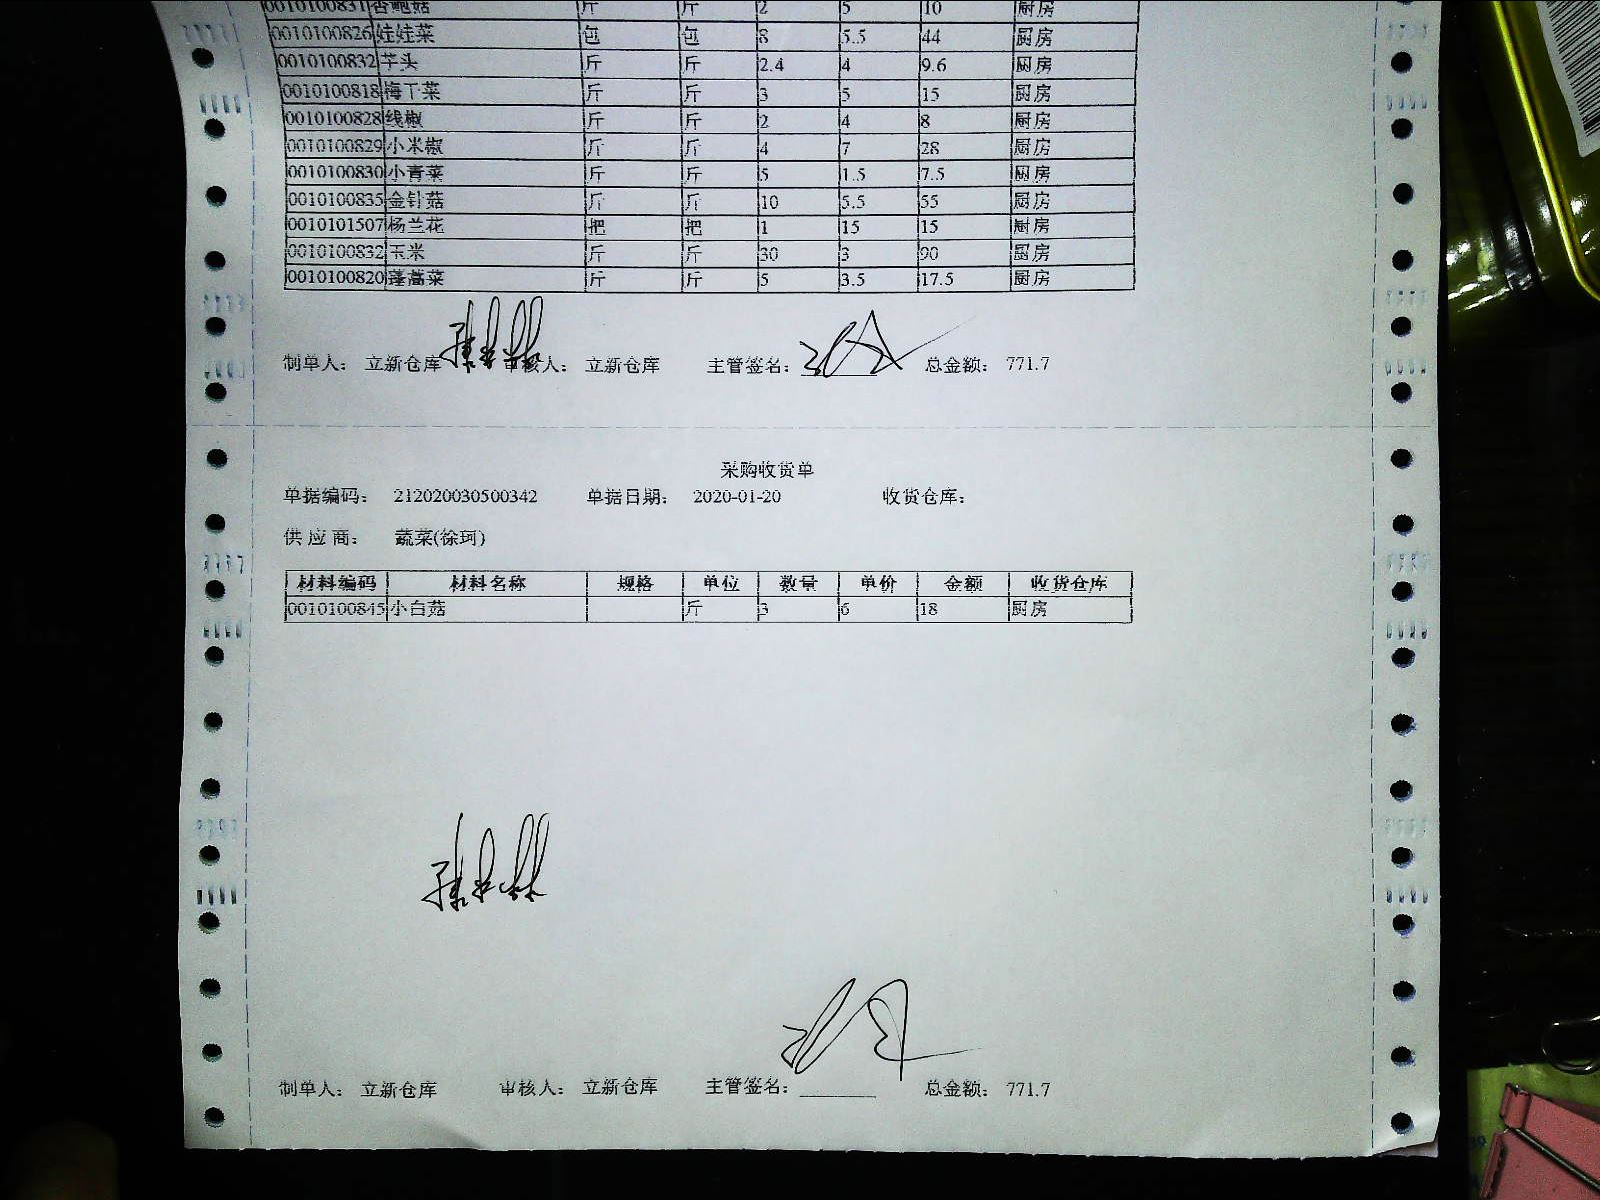 0010100831 杏鲍菇 斤 斤 2 5 10 厨房
0010100826 娃娃菜 包 包 8 5.5 44 厨房
0010100832 芋头 斤 斤 2.4 4 9.6 厨房
0010100818 梅干菜 斤 斤 3 5 15 厨房
0010100828 线椒 斤 斤 2 4 8 厨房
0010100829 小米椒 斤 斤 4 7 28 厨房
0010100830 小青菜 斤 斤 5 1.5 7.5 厨房
0010100835 金针菇 斤 斤 10 5.5 55 厨房
0010101507 杨兰花 把 把 1 15 15 厨房
0010100832 玉米 斤 斤 30 3 90 厨房
0010100820 蓬蒿菜 斤 斤 5 3.5 17.5 厨房
制单人： 立新仓库 审核人： 立新仓库 主管签名： 总金额： 771.7
采购收货单
单据编码： 212020030500342 单据日期： 2020-01-20 收货仓库：
供应商： 蔬菜(徐珂)
材料编码 材料名称 规格 单位 数量 单价 金额 收货仓库
0010100845 小白菇 斤 3 6 18 厨房
制单人： 立新仓库 审核人： 立新仓库 主管签名： 总金额： 771.7